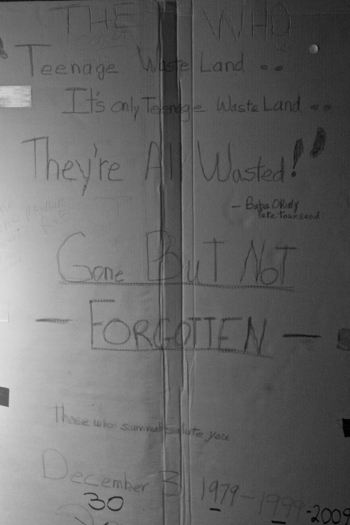 THE WHO
Teenage Waste Land ..
It's only Teenage Waste Land ..
They're All Wasted!
— Baba O'Rily
Pete Townsend
Gone BuT NoT
— FORGOTTEN —
Those who survived salute you
December 3 1979 - 1999 - 2009
30